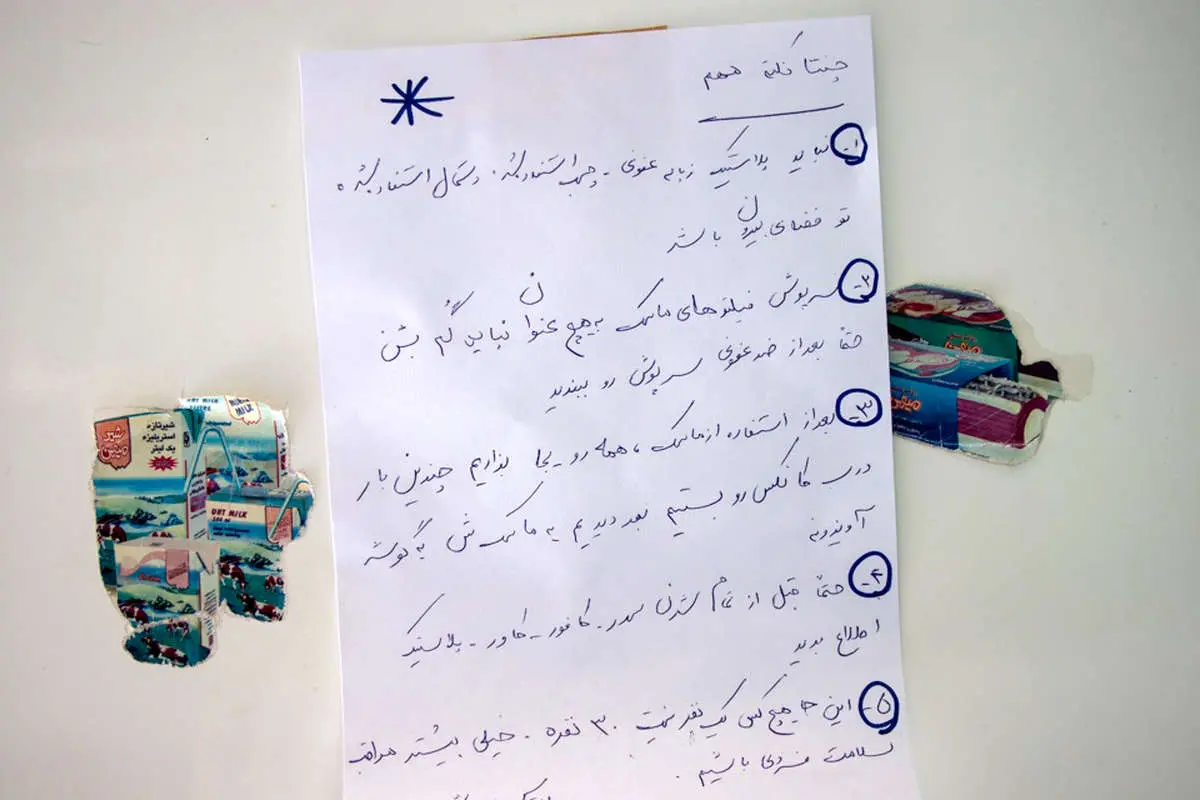 چنتا نکته مهم
۱- نباید پلاستیک زباله عفونی - چسب استفاده شده. دستمال استفاده شده
تو فضای بیرون باشد
۲- سرپوش فیلترهای ماسک به هیچ عنوان نباید گم بشن
حتماً بعد از ضدعفونی سرپوش رو ببندید
۳- بعد از استفاده از ماسک، همه رو یجا بذاریم چندین بار
درب کانکس رو بستیم بعد دیدیم یه ماسک ش یه گوشه
آویزونه
۴- حتماً قبل از تمام شدن سدر - کافور - کاور - پلاستیک
اطلاع بدید
۵- این جا هیچ کس یک نفر نیست ۳۰ نفره. خیلی بیشتر مراقب
سلامت فردی باشیم.
شیر تازه
استریلیزه
یک لیتر
میهن
DBT MILK
میهن